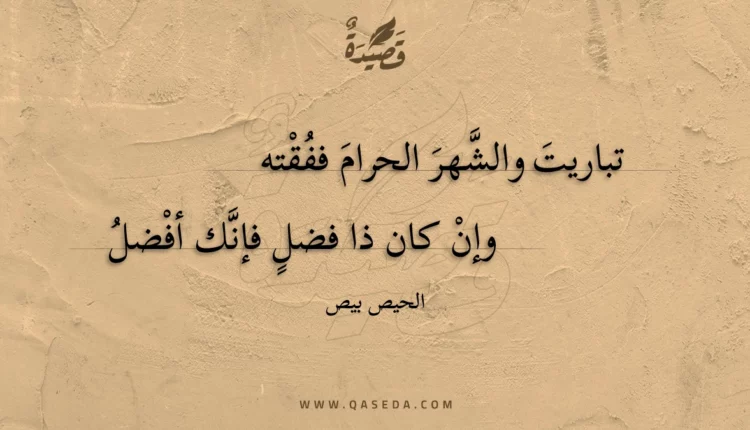 قَصِيدَةٌ
تباريتَ والشَّهرَ الحرامَ ففُقْته
وإنْ كان ذا فضلٍ فإنَّك أفْضلُ
الحيص بيص
WWW.QASEDA.COM